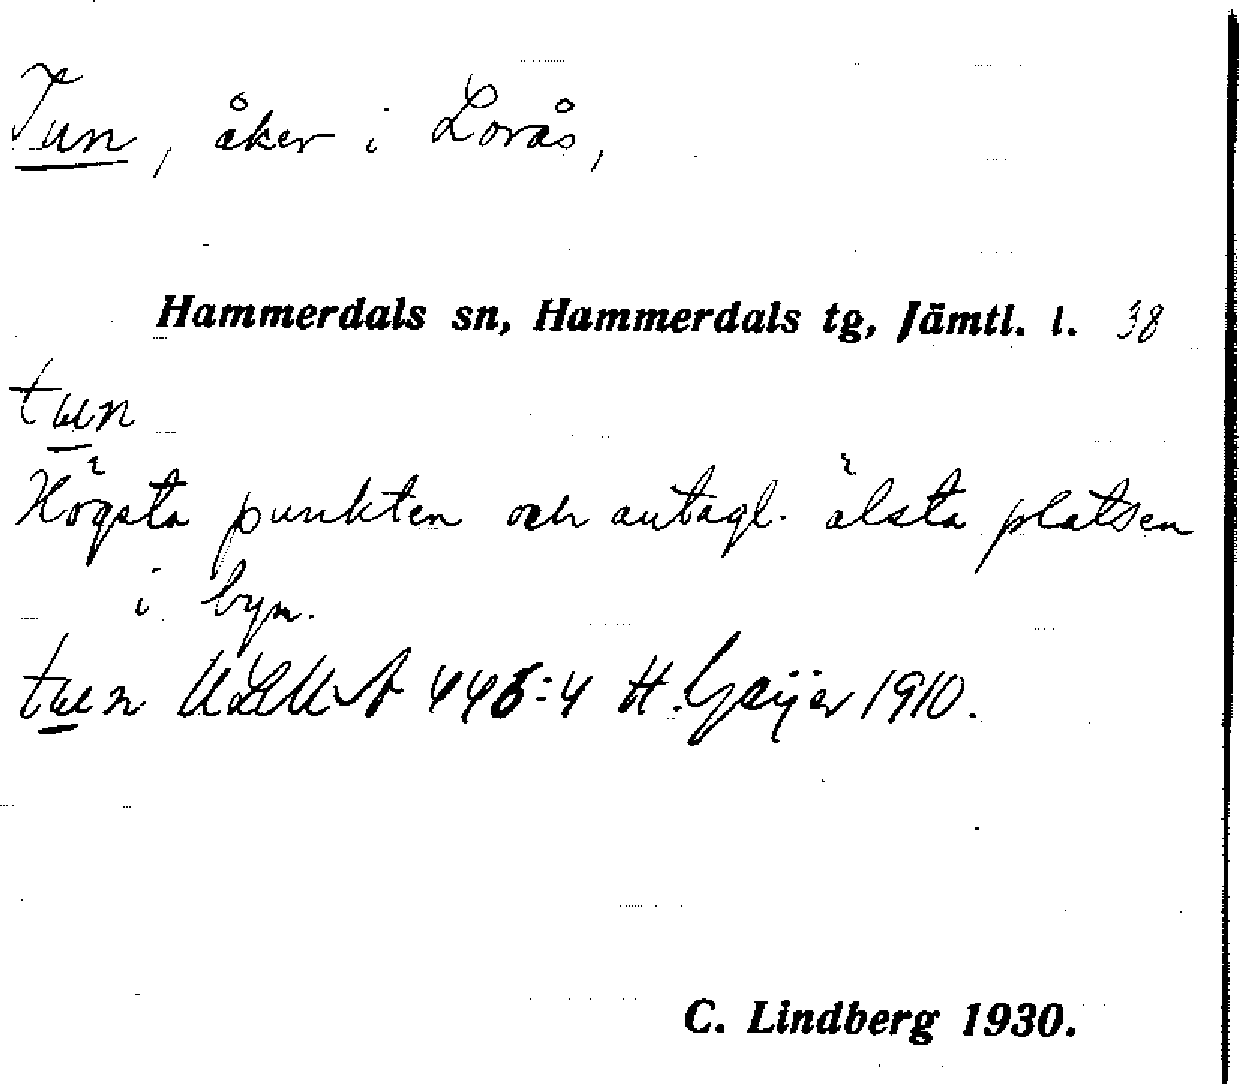 Tun, åker i Lorås,
Hammerdals sn, Hammerdals tg, Jämtl. l. 38
tun
Högsta punkten och antagl. älsta platsen
i byn.
tun ULMA 446:4 H. Geijer 1910.
C. Lindberg 1930.